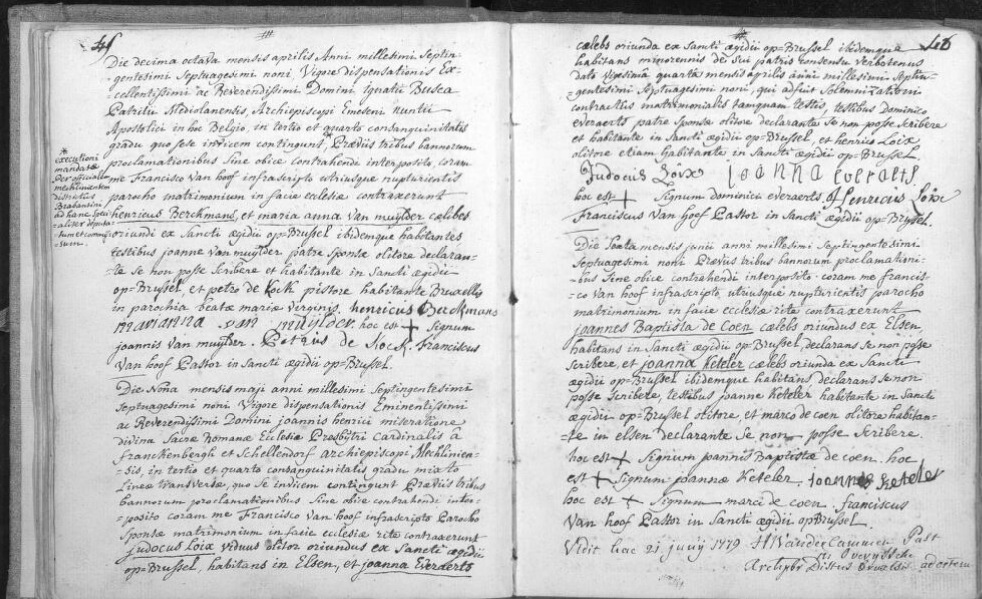 Die decima octava mensis aprilis Anni millesimi Septin-
gentesimi Septuagesimi noni Vigore dispensationis Ex-
cellentissimi ac Reverendissimi Domini Ignatii Busca
Patritii Mediolanensis, Archiepiscopi Emeseni Nuntii
Apostolici in hoc Belgio, in tertio et quarto consanguinitatis
gradu quo sese invicem contingunt, Præviis tribus bannorum
proclamationibus Sine obice contrahendi interposito coram
me Francisco Van hoof infrascripto utriusque nupturientis
parocho matrimonium in facie ecclesiæ contraxerunt
henricus Berckmans, et maria anna Van muijlder cælibes
oriundi ex Sancti ægidii op=Brussel ibidemque habitantes
testibus joanne Van muijlder patre Sponsæ olitore declaran-
te Se non posse Scribere et habitante in Sancti ægidii
op=Brussel, et petro de Kock pistore habitante Bruxellis
in parochia beatæ mariæ virginis. henricus Berckmans
marianna van muijlder. hoc est + Signum
joannis Van muijlder. Petrus de Kock. Franciscus
Van hoof Pastor in Sancti ægidii op=Brussel.
executioni
mandatæ
per officialem
mechliniensem
districtus
Brabantini
ad hanc
Die Nona mensis maji anni millesimi Septingentesimi
Septuagesimi noni Vigore dispensationis Eminentissimi
ac Reverendissimi Domini joannis henrici miseratione
divina Sacræ Romanæ Ecclesiæ Presbytri Cardinalis à
Franckenbergh et Schellendorf archiepiscopi Mechlinien-
-sis, in tertio et quarto consanguinitatis gradu mixto
Lineæ transversæ, quo Se invicem contingunt Præviis tribus
bannorum proclamationibus Sine obice contrahendi inter-
=posito coram me Francisco Van hoof infrascripto Parocho
Sponsæ matrimonium in facie ecclesiæ rite contraxerunt
judocus Loix viduus olitor oriundus ex Sancti ægidii
op=Brussel, habitans in Elsen, et joanna Everaerts
cælebs oriunda ex Sancti ægidii op=Brussel ibidemque
habitans minorennis de Sui patris consensu verbotenus
dato Vigesima quarta mensis aprilis anni millesimi Septin-
=gentesimi Septuagesimi noni, qui adfuit Solemnizationi
contractus matrimonialis tamquam testis, testibus Dominico
everaerts patre Sponsæ olitore declarante Se non posse Scribere
et habitante in Sancti ægidii op=Brussel, et henrico Loix
olitore etiam habitante in Sancti ægidii op=Brussel.
Judocus Loix joanna everaets
hoc est + Signum dominici everaerts. Henricus Loix
Franciscus Van hoof Pastor in Sancti ægidii op=Brussel.
Die Sexta mensis junii anni millesimi Septingentesimi
Septuagesimi noni Præviis tribus bannorum proclamationi-
=bus Sine obice contrahendi interposito coram me francis-
=co Van hoof infrascripto, utriusque nupturientis parocho
matrimonium in facie ecclesiæ rite contraxerunt
joannes Baptista de Coen cælebs oriundus ex Elsen,
habitans in Sancti ægidii op=Brussel, declarans Se non posse
Scribere, et joanna Keteler cælebs oriunda ex Sancti
ægidii op=Brussel ibidemque habitans declarans Se non
posse Scribere, testibus joanne Keteler habitante in Sancti
ægidii op=Brussel olitore, et marco de coen olitore habitan-
=te in elsen declarante Se non posse Scribere.
hoc est + Signum joannis Baptistæ de coen. hoc
est + Signum joannæ Keteler. joannes keteler
hoc est + Signum marci de coen. franciscus
Van hoof Pastor in Sancti ægidii op Brussel.
Vidit hac 21 junij 1779 Past